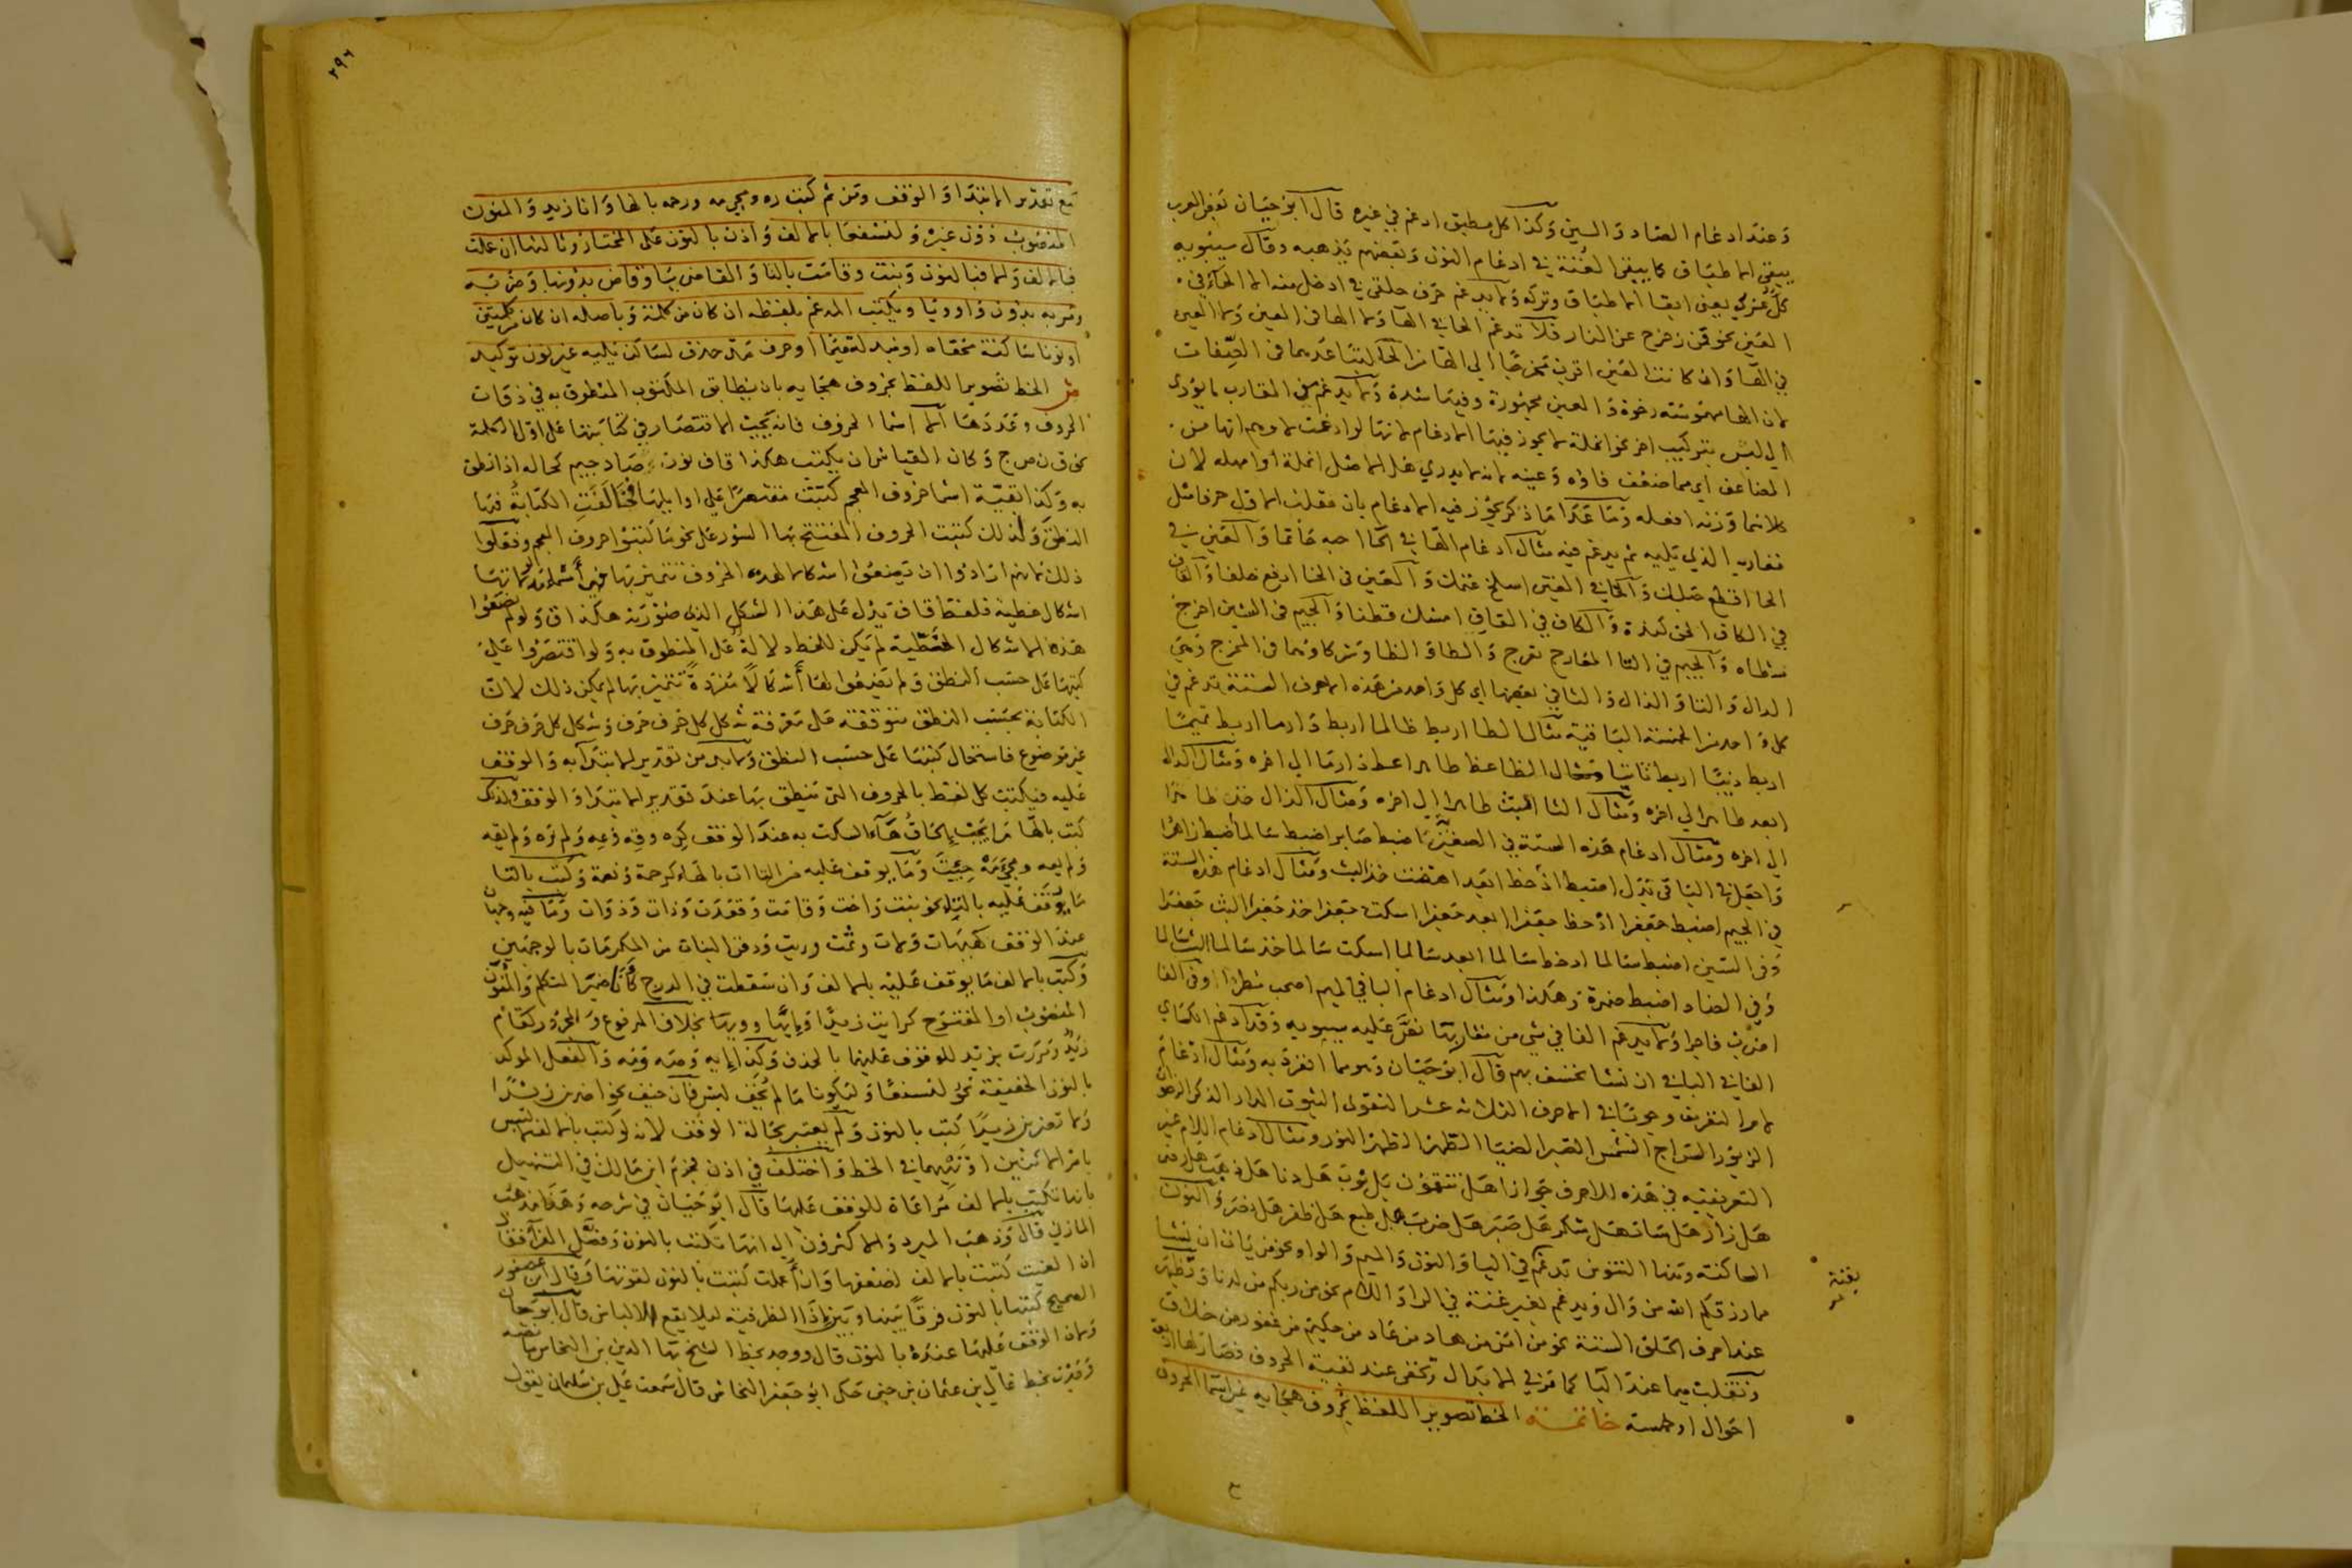 وعند ادغام الصاد والسين وكذا كل مطبق ادغم في غيره قال ابو حيان بعض العرب
يبقي الاطباق كما يبقي الغنة في ادغام النون وبعضهم يذهبه وقال سيبويه
كل عربي يعني ابقا الاطباق وتركه ولا يدغم حرف حلقي في ادخل منه الا الحاء في
العين نحو فمن زحزح عن النار فلا تدغم الحا في الها ولا الها في العين ولا العين
في الها وان كانت العين اقرب مخرجا الي الها من الحا لتباعدهما في الصفات
لان الها مهموسة رخوة والعين مجهورة وفيها شدة ولا يدغم من المقارب ما يؤدي
الي لبس بتركيب اخر نحو انملة لا يجوز فيها الادغام لانها لو ادغمت لاوهم انها من
المضاعف اي مما ضعف فاؤه وعينه لانه لا يدري هل الاصل انملة او امله لان
كلا منهما وزنه افعله وما عدا ما ذكر يجوز فيه الادغام بان تقلب الاول حرفا مثل
مقاربه الذي يليه ثم يدغم فيه مثال ادغام الها في الحا اجبه حاتما والعين في
الحا اقطع حبلك والحا في العين اسلخ غنمك والعين في الخا ادمغ خلفا والقاف
في الكاف الحق كلدة والكاف في القاف امسك قطنا والجيم في الشين اخرج
شطاه والجيم في التا المعارج تعرج والطا والظا وتشاركاهما في المخرج وهي
الدال والتا والذال والثا في بعضها اي كل واحد من هذه الاحرف الستة تدغم في
كل واحد من الخمسة الباقية مثال الطا اربط ظالما اربط دارما اربط تميما
اربط ذيبا اربط ثابتا ومثال الظا عظ طاهرا عظ دارما الي اخره ومثال الدال
ابعد طاهرا الي اخره ومثال الثا البث طاهرا الي اخره ومثال الذال خذ طاهرا
الي اخره ومثال ادغام هذه الستة في الصفير اضبط صابرا اضبط سالما اضبط زاهرا
في الجيم اضبط جعفرا احفظ جعفرا ابعد جعفرا اسكت جعفرا خذ جعفرا البث جعفرا
وفي السين اضبط سالما احفظ سالما ابعد سالما اسكت سالما خذ سالما البث سالما
وفي الضاد اضبط ضمرة وهكذا ومثال ادغام البا في الميم اصحب مطرا وفي الفا
اضرب فاجرا ولا يدغم الفا في شي من مقاربها نص عليه سيبويه وقد ادغم الكساي
الفا في البا في ان نشا نخسف بهم قال ابو حيان وهو مما انفرد به ومثال ادغام
لام التعريف وجوبا في الاحرف الثلاثة عشر التقوي الثبوت الدار الذكر الرضوان
الزبور السراج الشمس الصبر الضيا الطهر الظهر النور ومثال ادغام اللام غير
التعريفية في هذه الاحرف جوازا هل تنقمون بل ثوب هل دنا هل ذهب هل رمي
هل زار هل سات هل شكر هل صبر هل ضرب هل طبع هل ظفر هل نضر والنون
الساكنة ومنها التنوين تدغم في اليا والنون والميم والواو نحو من يات ان نشا
مما رزقكم الله من وال ويدغم بغير غنة في الرا واللام نحو من ربكم من لدنا وتظهر
عند احرف الحلق الستة نحو من امن من هاد من عاد من حكيم من غفور من خلاق
وتقلب ميما عند البا كما مر في الابدال وتخفي عند بقية الحروف فصار لها اربعة
احوال او خمسة خاتمة الخط تصوير اللفظ بحروف هجايه غير اسما الحروف
بغنة
٢٩٦
مع تقدير الابتدا والوقف ومن ثم كتبت ره ومجيء مه ورحمه بالها وانا زيد والمنون
المنصوب دون غيره ولنسفعا بالالف واذن بالنون علي المختار وثالثها ان عملت
فبالالف والا فبالنون وبنت وقامت بالتا والقاضي بيا وقاض بدونها وضربه
ومر به بدون واو ويا ويكتب المدغم بلفظه ان كان من كلمة وباصله ان كان من كلمتين
او نونا ساكنة مخفاه او مبدلة ميما او حرف مد حذف لساكن يليه غير نون توكيد
ش الخط تصوير اللفظ بحروف هجايه بان يطابق المكتوب المنطوق به في ذوات
الحروف وعددها الا اسما الحروف فانه يجب الاقتصار في كتابتها علي اول الكلمة
نحو ق ن ص ج وكان القياس ان يكتب هكذا قاف نون صاد جيم كحاله اذا نطق
به وكذا بقية اسما حروف المعجم كتبت مقتصرا علي اوايلها فخالفت الكتابة فيها
النطق ولذلك كتبت الحروف المفتتح بها السور علي نحو ما كتبوا حروف المعجم وفعلوا
ذلك لانهم ارادوا ان يضعوا اشكالا لهذه الحروف تتميز بها فهي اسماء مدلولاتها
اشكال خطية فلفظ قاف يدل علي هذا الشكل الذي صورته هكذا ق ولو لم يضعوا
هذه الاشكال الخطية لم يكن للخط دلالة علي المنطوق به ولو اقتصروا علي
كتبها علي حسب النطق ولم يضعوا لها أشكالا مفردة تتميز بها لم يمكن ذلك لان
الكتابة بحسب النطق متوقفة علي معرفة شكل كل حرف حرف وشكل كل حرف حرف
غير موضوع فاستحال كتبها علي حسب النطق ولا بد من تقدير الابتدا به والوقف
عليه فيكتب كل لفظ بالحروف التي ينطق بها عند تقدير الابتدا والوقف ولذلك
كتب بالها ما يجب إلحاق هاء السكت به عند الوقف كره وقه وعه ولم يره ولم يقه
ولم يعه ومجيء مه جيت وما يوقف عليه من التاات بالهاء كرحمة ونعمة وكتب بالتا
ما يوقف عليه بالتاء نحو بنت واخت وقامت وقعدت وذات وذوات وما فيه وجهان
عند الوقف كهيهات ولات وثمت وربت ودفن البنات من المكرمات بالوجهين
وكتب بالالف ما يوقف عليه بالالف وان سقطت في الدرج كأنا ضمير المتكلم والمنون
المنصوب او المفتوح كرايت زيدا وايها وويها بخلاف المرفوع والمجرور كقام
زيد ومررت بزيد للوقوف عليهما بالحذف وكذا إيه وصه ومه والفعل الموكد
بالنون الخفيفة نحو لنسفعا وليكونا ما لم يخف لبس فان خيف نحو اضربن زيدا
ولا تضربن زيدا كتب بالنون ولم يعتبر بحالة الوقف لانه لو كتب بالالف لالتبس
بامر الاثنين او نهيهما في الخط واختلف في اذن فجزم ابن مالك في التسهيل
بانها تكتب بالالف مراعاة للوقف عليها قال ابو حيان في شرحه وهذا مذهب
المازني قال وذهب المبرد والاكثرون الي انها تكتب بالنون وفصل الفرآ فقال
ان الغيت كتبت بالالف لضعفها وان أعملت كتبت بالنون لقوتها وقال ابن عصفور
الصحيح كتبها بالنون فرقا بينها وبين إذا الظرفية ليلا يقع الالباس قال ابو حيان
ولان الوقف عليها عنده بالنون قال ووجد بخط الشيخ بها الدين بن النحاس ما نصه
وجدت بخط عالي بن عثمان بن جني حكي ابو جعفر النحاس قال سمعت علي بن سليمان يقول